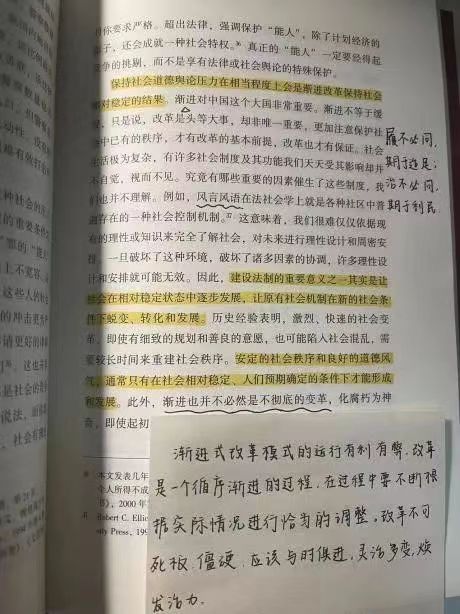 对你要求严格。超出法律，强调保护“能人”，除了计划经济的
子，还会成就一种社会特权。真正的“能人”一定要经得起
争的挑剔，而不是享有法律或社会舆论的特殊保护。
保持社会道德舆论压力在相当程度上会是渐进改革保持社会
相对稳定的结果。渐进对中国这个大国非常重要。渐进不等于缓
，只是说，改革是头等大事，却非唯一重要，更加注意保护社
中已有的秩序，才有改革的基本前提，改革也才有保证。社会
生活极为复杂，有许多社会制度及其功能我们天天受其影响却并
不自觉，视而不见。究竟有哪些重要的因素催生了这些制度，我
们也并不理解。例如，风言风语在法社会学上就是各种社区中普
遍存在的一种社会控制机制。这意味着，我们很难仅仅依据现
有的理性或知识来完全了解社会，对未来进行理性设计和周密安
排。一旦破坏了这种环境，破坏了诸多因素的协调，许多理性设
计和安排就可能无效。因此，建设法制的重要意义之一其实是让
社会在相对稳定状态中逐步发展，让原有社会机制在新的社会条
件下蜕变、转化和发展。历史经验表明，激烈、快速的社会变
革，即使有细致的规划和善良的意愿，也可能陷入社会混乱，需
要较长时间来重建社会秩序。安定的社会秩序和良好的道德风
气，通常只有在社会相对稳定、人们预期确定的条件下才能形成
和发展。此外，渐进也并不必然是不彻底的变革，化腐朽为神
奇，即使起初
履不必同，
期于适足；
治不必同，
期于利民
本文发表几年
个人所得不成
》，2000年
Robert C. Ellic
ersity Press, 199
渐进式改革模式的运行有利有弊，改革
是一个循序渐进的过程，在过程中要不断根
据实际情况进行恰当的调整。改革不可
死板、僵硬，应该与时俱进，灵活多变，焕
发活力。